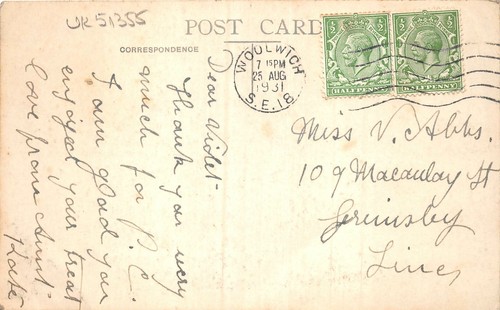 UK51355
POST CARD
CORRESPONDENCE
WOOLWICH
7 15PM
25 AUG
1931
S.E.18
HALFPENNY
HALFPENNY
Dear Violet-
Thank you very
much for P.C.
I am glad you
enjoyed your treat
Love from Aunt-
Kate
Miss V. Abbs.
109 Macaulay St
Grimsby
Lincs